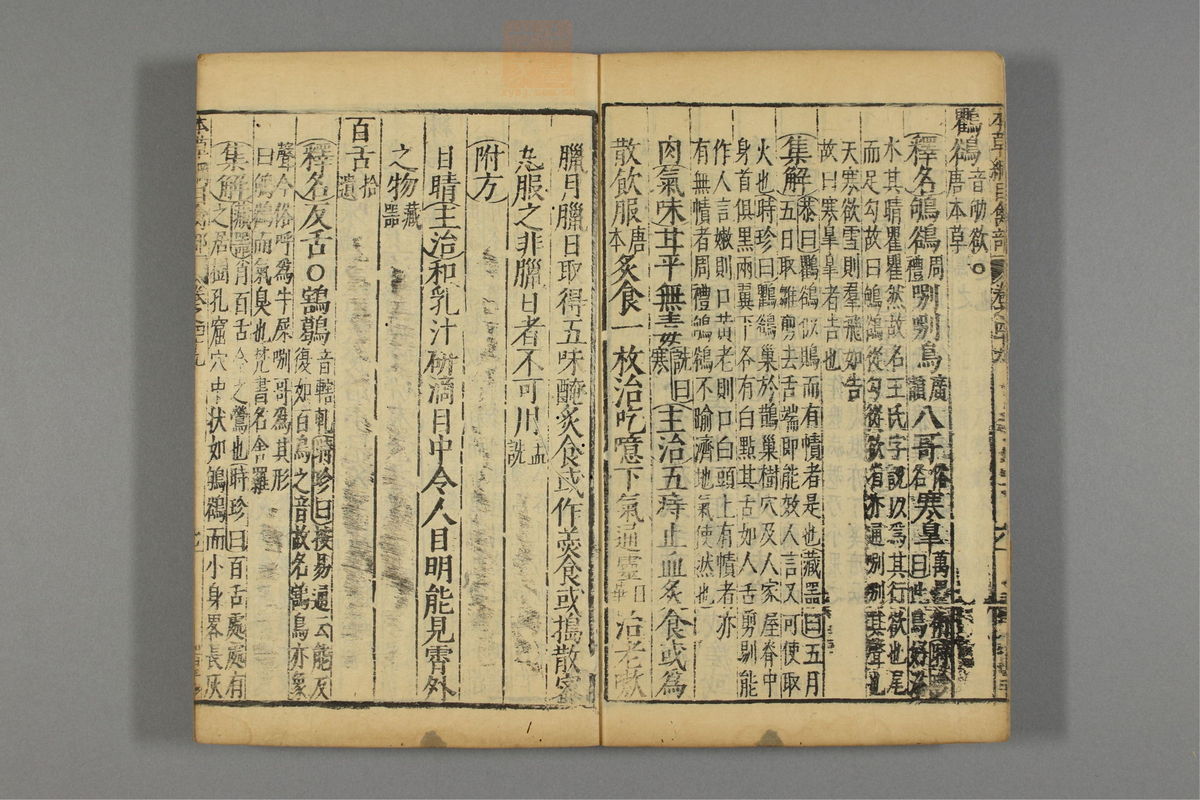 本草綱目禽部 卷之四十九
鸜鵒音劬欲唐本草
釋名鴝鵒周禮哵哵鳥廣韻八哥俗名寒皋萬畢術時珍曰此鳥好浴
水其睛瞿瞿然故名王氏字說以爲其行欲也尾
而足勾故曰鴝鵒從勾從欲省亦通哵哵其聲也
天寒欲雪則羣飛如告
故曰寒皋皋者告也
集解恭曰鸜鵒似鵙而有幘者是也藏器曰五月
五日取雛剪去舌端即能效人言又可使取
火也時珍曰鸜鵒巢於鵲巢樹穴及人家屋脊中
身首俱黑兩翼下各有白點其舌如人舌剪剔能
作人言嫩則口黃老則口白頭上有幘者亦
有無幘者周禮鴝鵒不踰濟地氣使然也
肉氣味甘平無毒詵曰寒主治五痔止血炙食或爲
散飲服唐本炙食一枚治吃噫下氣通靈日華治老嗽
臘日臘日取得五味醃炙食或作羹食或搗散蜜
丸服之非臘日者不可用孟詵
附方
目睛主治和乳汁研滴目中令人目明能見霄外
之物藏器
百舌拾遺
釋名反舌〇鶷䳚音轄軋時珍曰按易通云能反
復如百鳥之音故名鶷䳚亦象
聲今俗呼爲牛屎哵哥爲其形
曰鴝鵒而氣臭也梵書名舍羅
集解藏器曰肖百舌今之鶯也時珍曰百舌處處有
之居樹孔窟穴中狀如鴝鵒而小身畧長灰